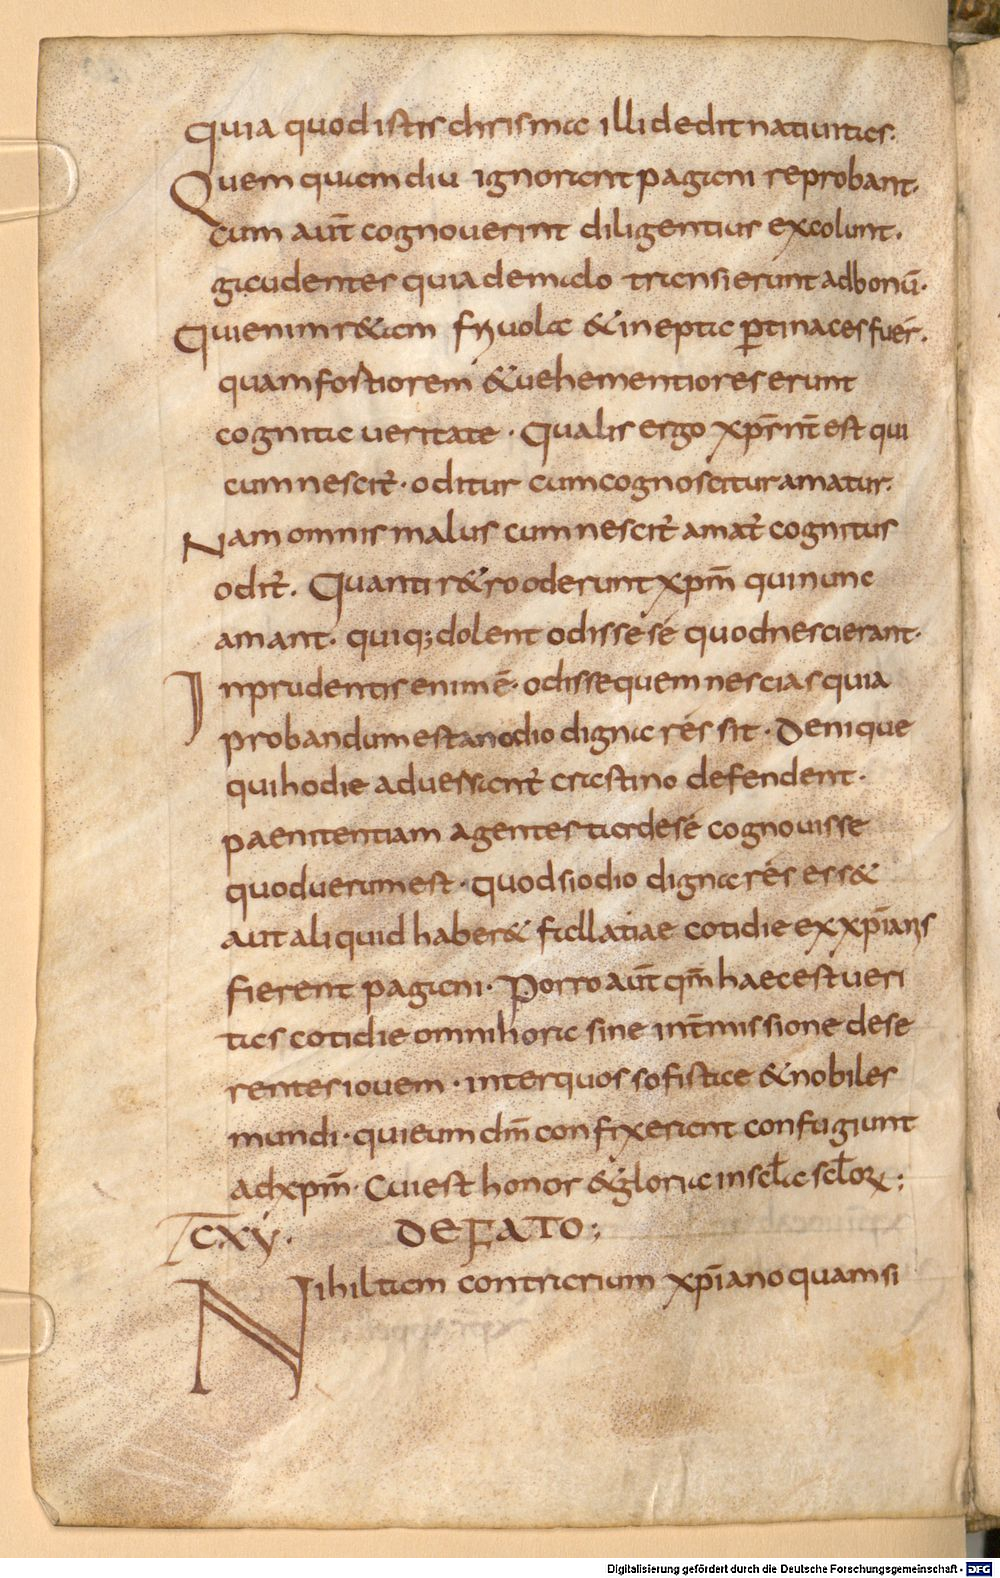 quia quod istis chrisma illi dedit natiuitas.
Quem quamdiu ignorant pagani reprobant.
cum aut̄ cognouerint diligentius excolunt.
gaudentes quia de malo transierunt ad bonū.
Qui enim r&iam friuola &inepta ꝑtinaces fuer̄.
quam fortiorem &uehementiores erunt
cognita ueritate. Qualis ergo xp̄s nr̄ est qui
cum nescit̄. oditur cum cognoscitur amatur.
Nam omnis malus cum nescit̄ amat̄ cognitus
odit̄. Quanti r&ro oderunt xpm̄ qui nunc
amant. quiq; dolent odisse se quod nescierant.
Inprudentis enim ē. odisse quem nescias quia
probandum est an odio digna res sit. Denique
qui hodie aduersant̄ crastino defendent.
paenitentiam agentes tarde se cognouisse
quod uerum est. quod si odio digna res ess&
aut aliquid haber& fallatiae cotidie ex xp̄ianis
fierent pagani. Porro aut̄ qm̄ haec est ueri
tas cotidie omni hora sine int̄missione dese
rentes iouem. inter quos sofistae &nobiles
mundi. qui eum dm̄ confixerant confugiunt
ad xpm̄. Cui est honor &gloria in scl̄a scl̄oꝝ;
Tcxv. DE FATO;
Nihil tam contrarium xp̄iano quam si
Digitalisierung gefördert durch die Deutsche Forschungsgemeinschaft - DFG